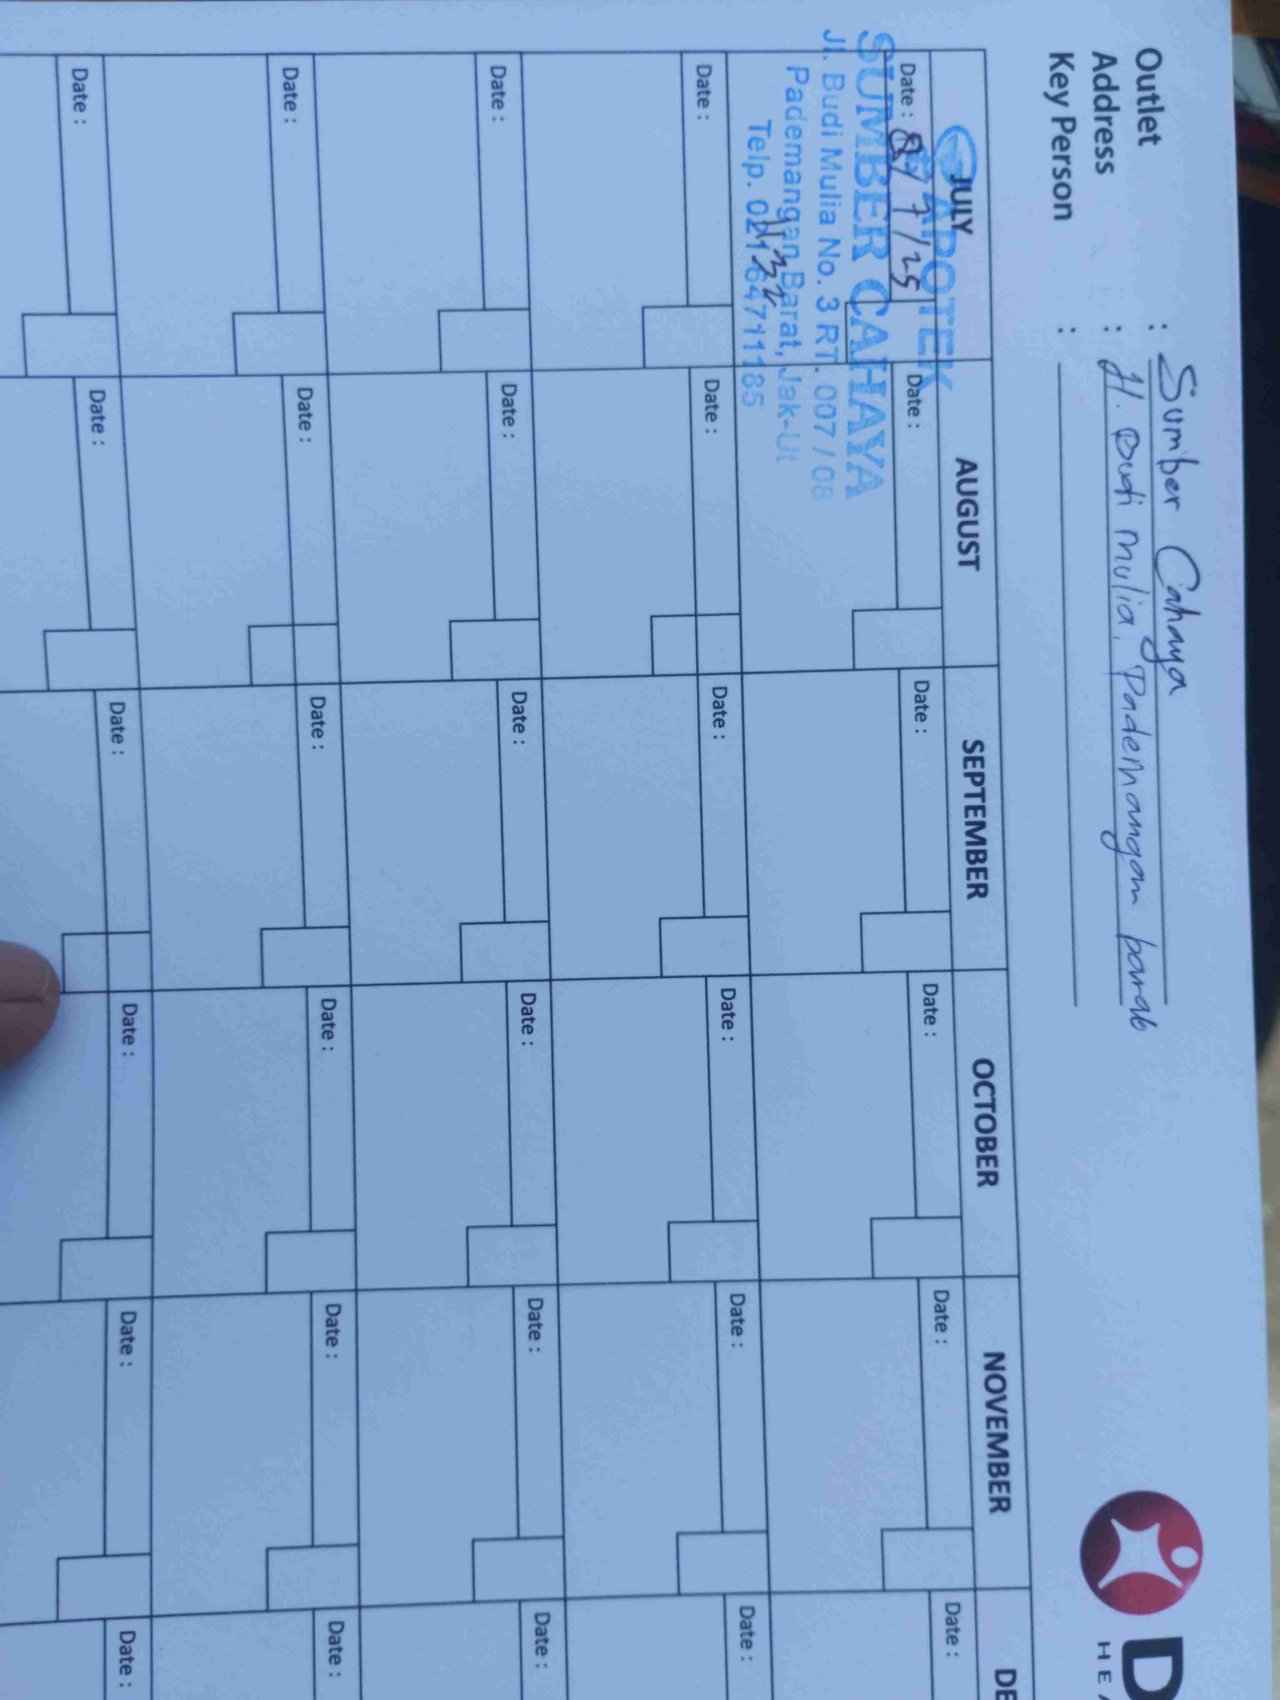 Outlet : Sumber Cahaya
Address : Jl. Budi Mulia, Pademangan barat
Key Person :
D
HEA
JULY AUGUST SEPTEMBER OCTOBER NOVEMBER DE
Date : 8/7/25 Date : Date : Date : Date : Date :
APOTEK
SUMBER CAHAYA
Jl. Budi Mulia No. 3 RT. 007 / 08
Pademangan Barat, Jak-Ut
Telp. 021-64711185
Date : Date : Date : Date : Date : Date :
Date : Date : Date : Date : Date : Date :
Date : Date : Date : Date : Date : Date :
Date : Date : Date : Date : Date : Date :